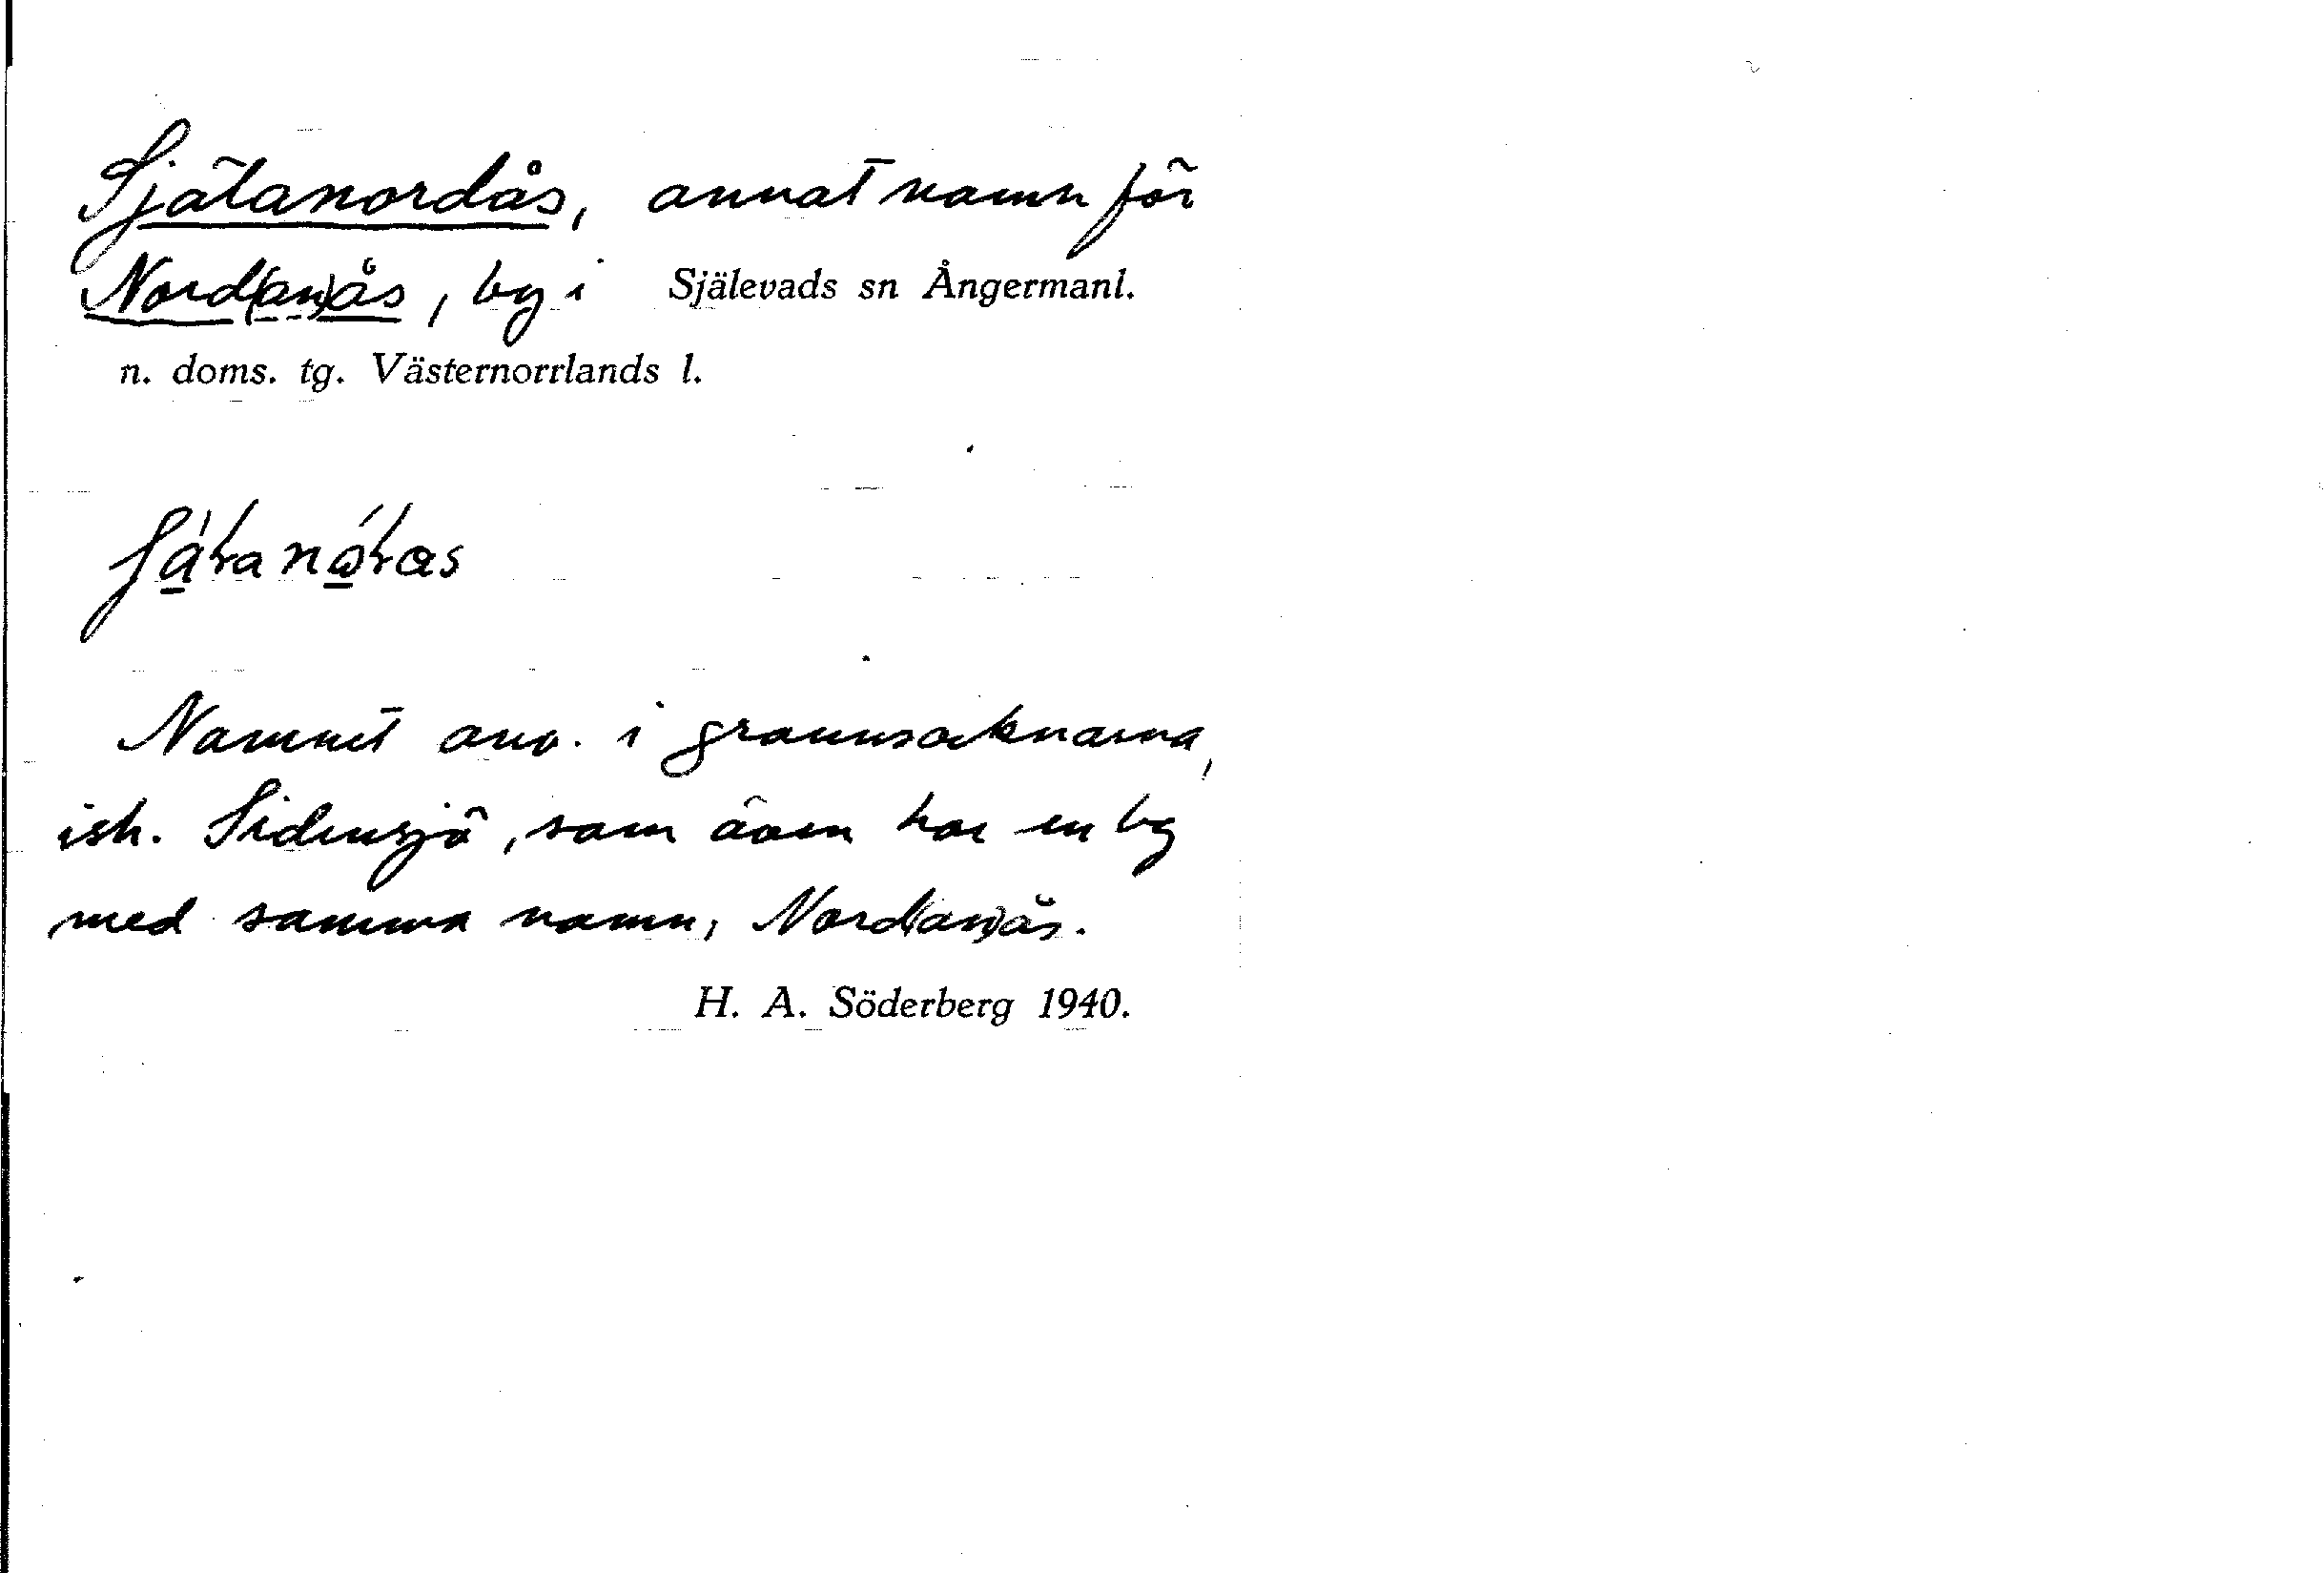 Själanordås, annat namn för
Nord(an)ås, by i Själevads sn Ångermanl.
n. doms. tg. Västernorrlands l.
Namnet anv. i grannsocknarna,
ish. Sidensjö, som även har en by
med samma namn, Nord(an)ås.
H. A. Söderberg 1940.